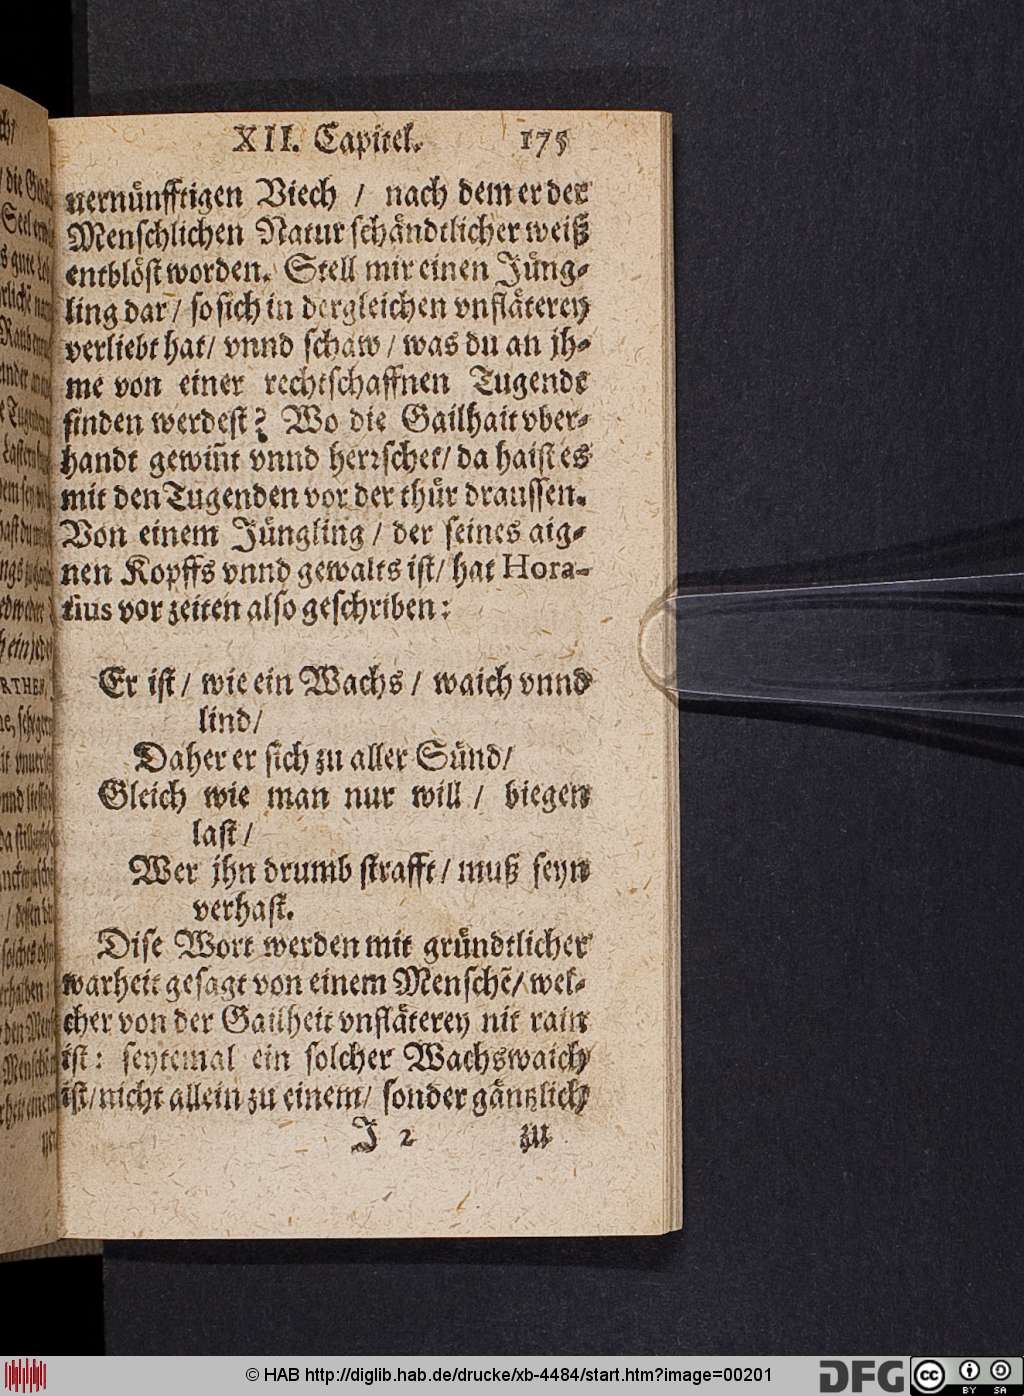 XII. Capitel. 175
uernünfftigen Viech / nach dem er der
Menschlichen Natur schändtlicher weiß
entblöst worden. Stell mir einen Jüng-
ling dar / so sich in dergleichen vnfläterey
verliebt hat / vnnd schaw / was du an jh-
me von einer rechtschaffnen Tugendt
finden werdest? Wo die Gailhait vber-
handt gewiñt vnnd herrschet / da haist es
mit den Tugenden vor der thür draussen.
Von einem Jüngling / der seines aig-
nen Kopffs vnnd gewalts ist / hat Hora-
tius vor zeiten also geschriben:
Er ist / wie ein Wachs / waich vnnd
lind /
Daher er sich zu aller Sünd /
Gleich wie man nur will / biegen
last /
Wer jhn drumb strafft / muß seyn
verhast.
Dise Wort werden mit gründtlicher
warheit gesagt von einem Menschẽ / wel-
cher von der Gailheit vnfläterey nit rain
ist: seytemal ein solcher Wachswaich
ist / nicht allein zu einem / sonder gäntzlich
J 2 zu
© HAB http://diglib.hab.de/drucke/xb-4484/start.htm?image=00201
DFG
cc BY SA